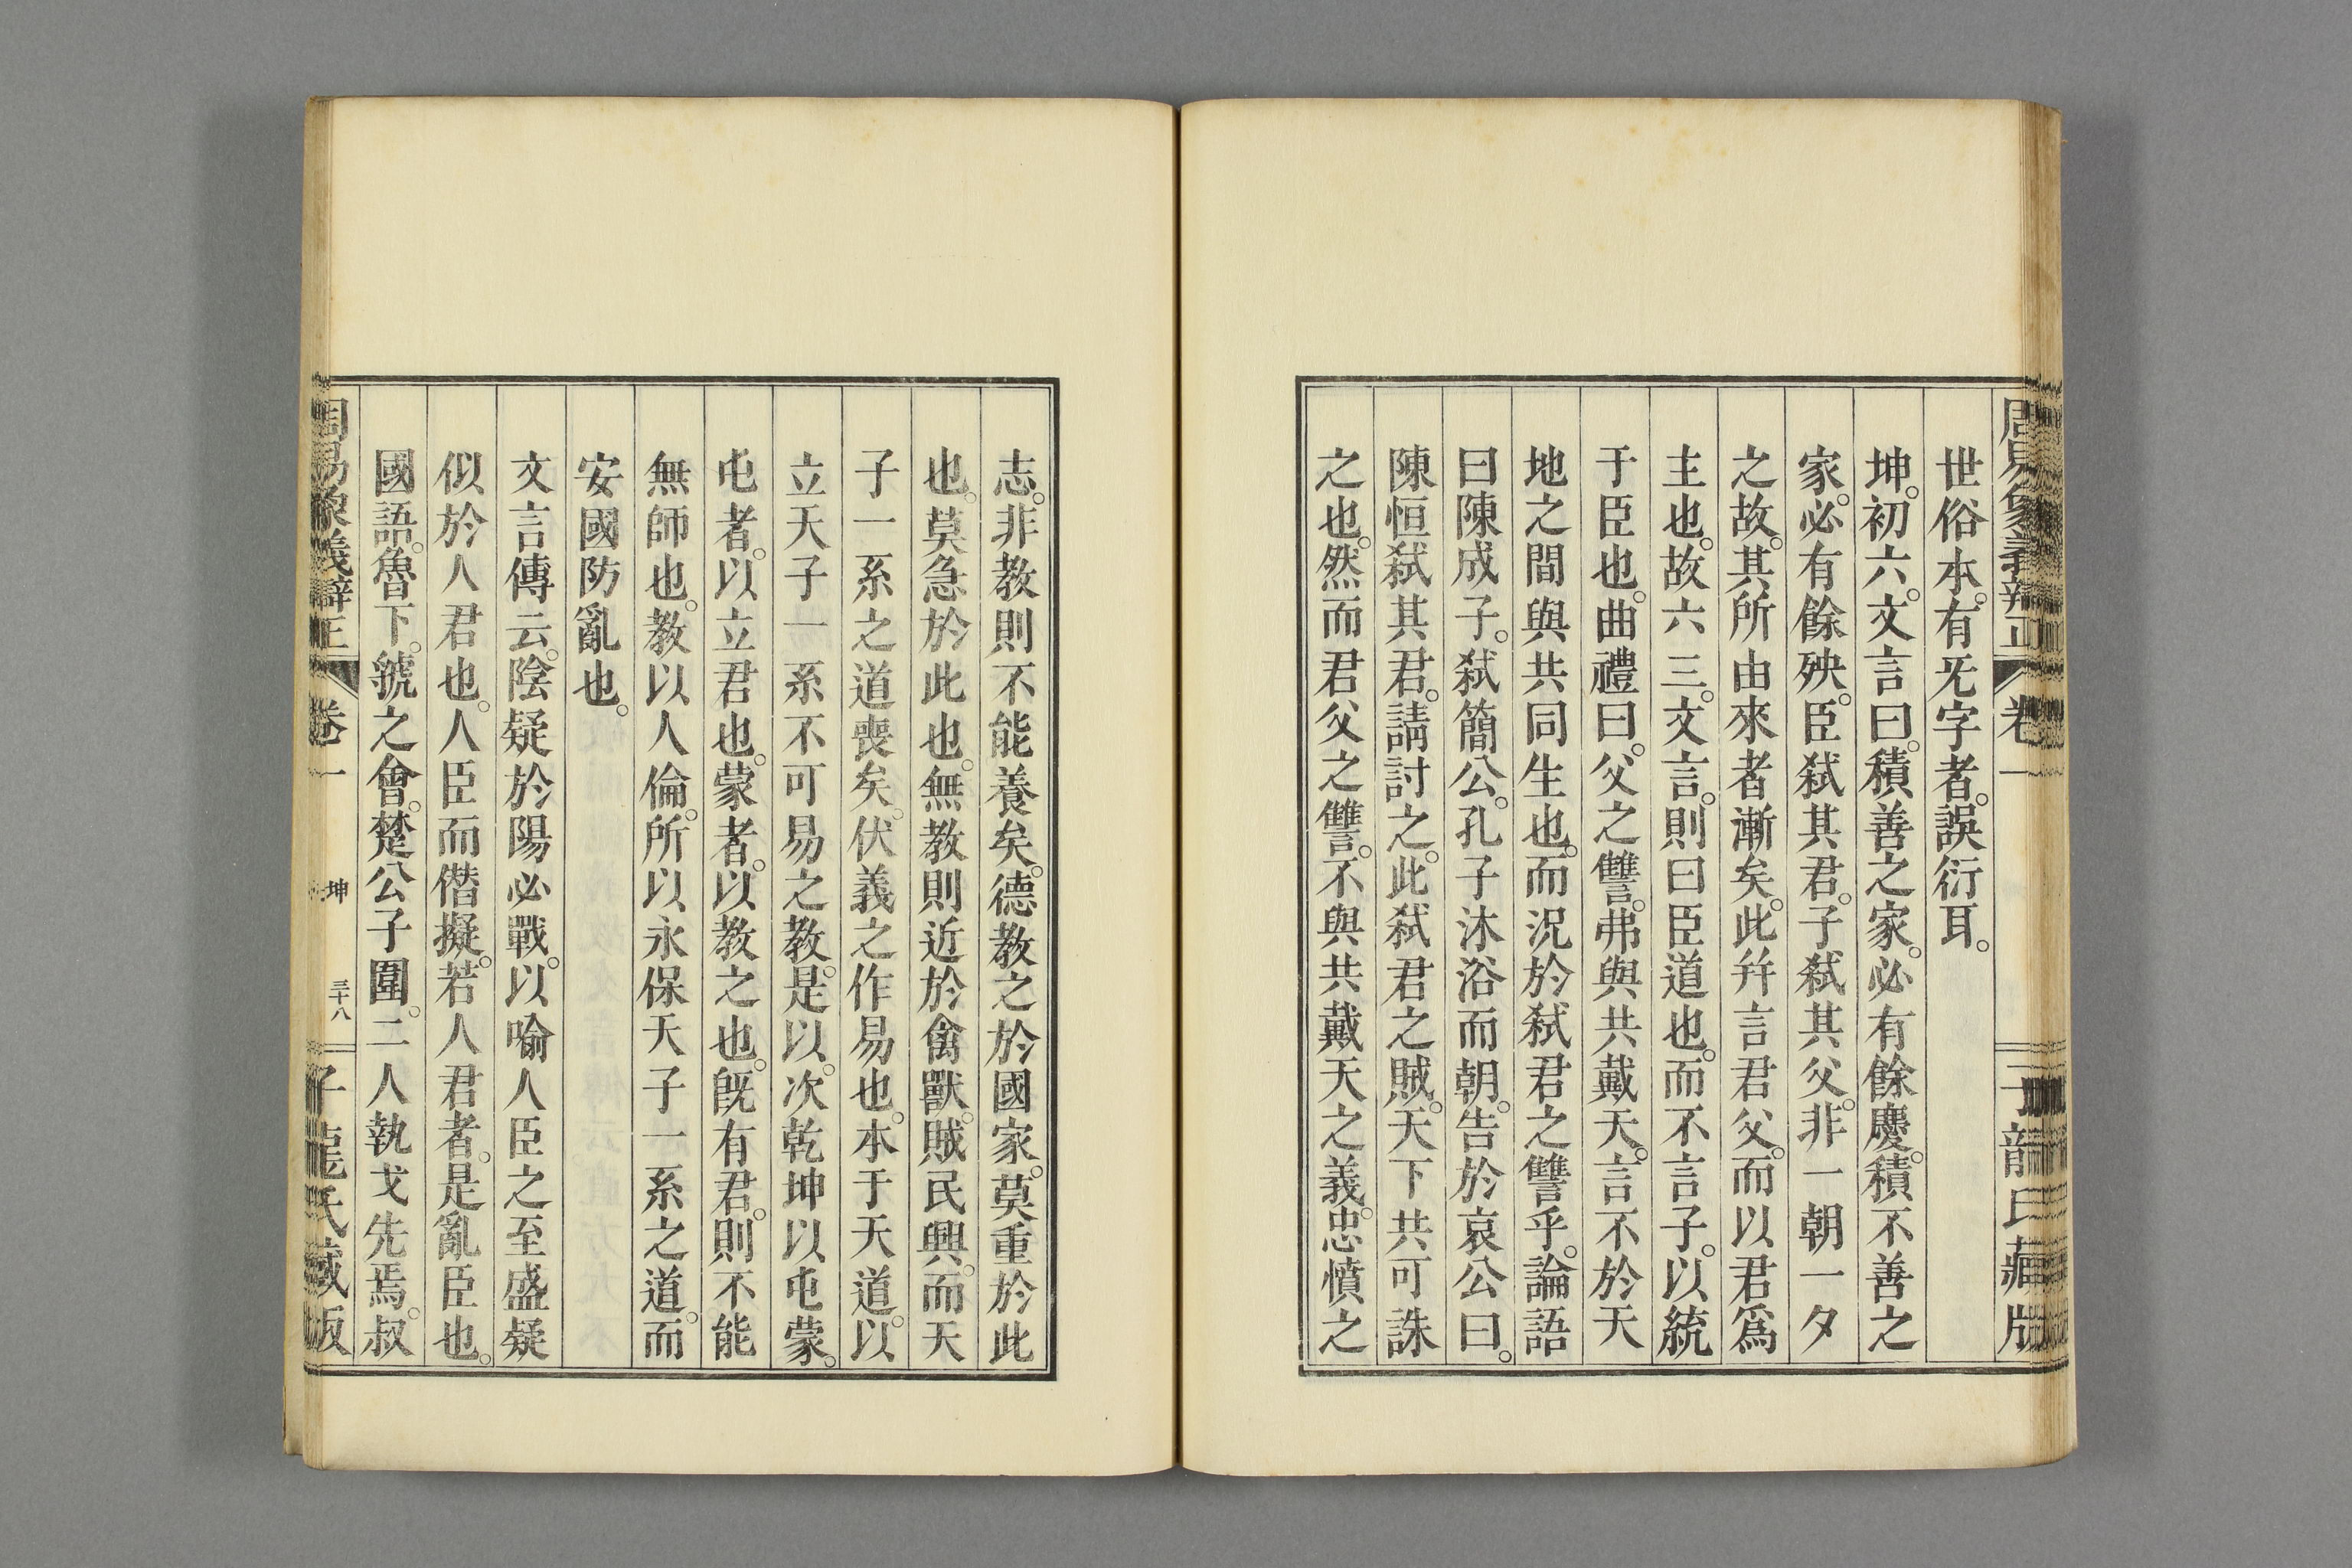 世俗本。有旡字者。誤衍耳。
坤。初六。文言曰。積善之家。必有餘慶。積不善之
家。必有餘殃。臣弒其君。子弒其父。非一朝一夕
之故。其所由來者漸矣。此幷言君父。而以君爲
主也。故六三。文言。則曰臣道也。而不言子。以統
于臣也。曲禮曰。父之讐。弗與共戴天。言不於天
地之間與共同生也。而況於弒君之讐乎。論語
曰陳成子。弒簡公。孔子沐浴而朝。告於哀公曰。
陳恒弒其君。請討之。此弒君之賊。天下共可誅
之也。然而君父之讐。不與共戴天之義。忠憤之
志。非教則不能養矣。德教之於國家。莫重於此
也。莫急於此也。無教則近於禽獸。賊民興。而天
子一系之道喪矣。伏義之作易也。本于天道。以
立天子一系不可易之教。是以。次乾坤以屯蒙。
屯者。以立君也。蒙者。以教之也。既有君。則不能
無師也。教以人倫。所以永保天子一系之道。而
安國防亂也。
文言傳云。陰疑於陽必戰。以喻人臣之至盛疑
似於人君也。人臣而僭擬。若人君者。是亂臣也。
國語。魯下。虢之會。楚公子圍。二人執戈先焉。叔
周易象義辯正 卷一 坤 三十八 子龍氏藏版